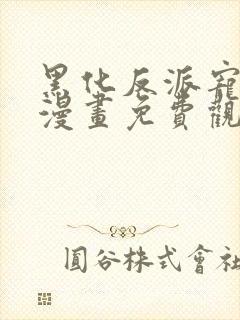 黑化反派寵
漫畫免費觀
圓谷株式會社